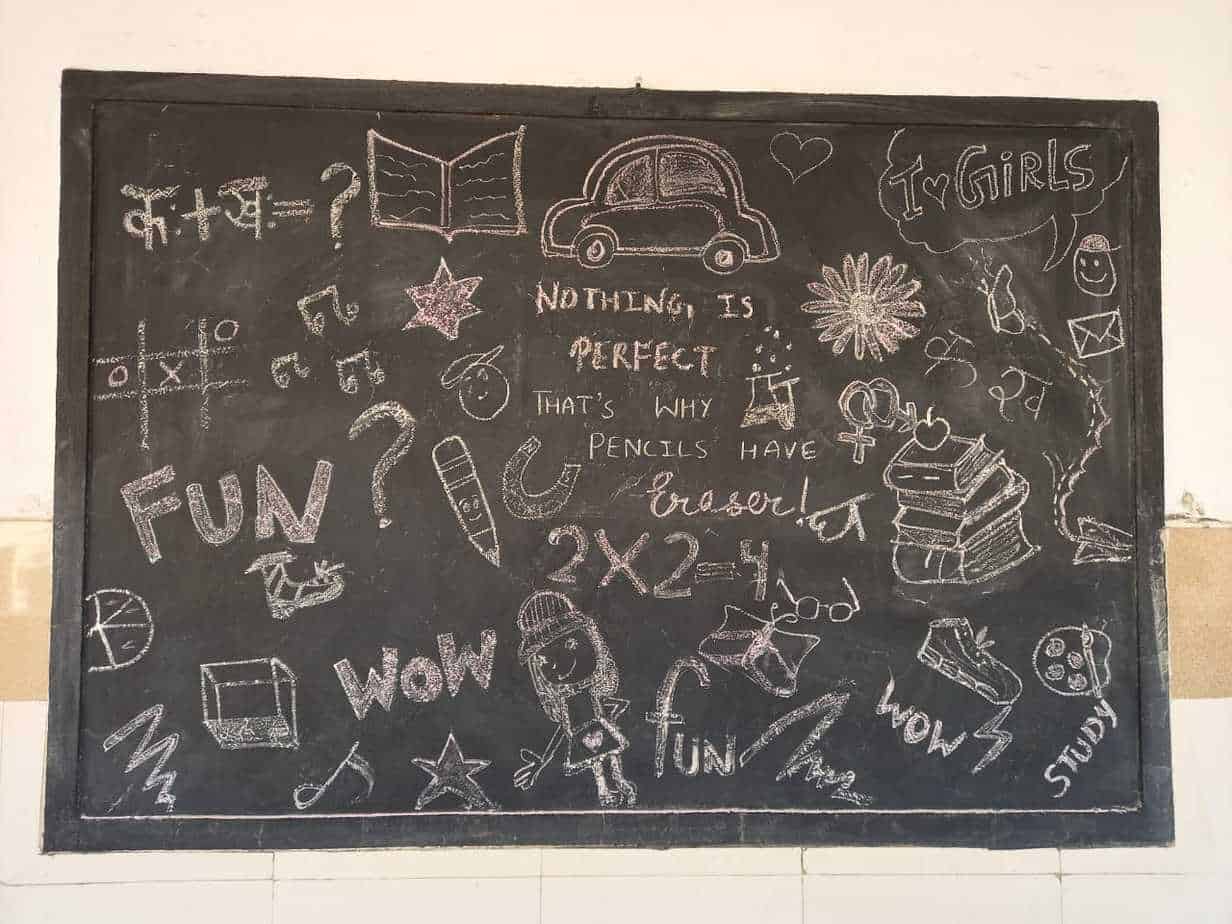 कः+खः=?
I ♡ GiRLS
NOTHING, IS
PERFECT
THAT'S WHY
PENCILS HAVE
Eraser!
O
O X
?
FUN
2×2=4
WOW
fUN
WOW
STUDY